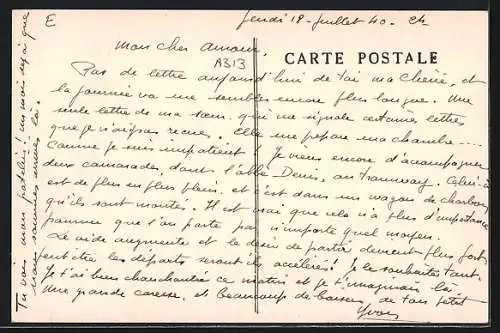 E
Jeudi 18 Juillet 40.
Mon cher Amour,
A313
CARTE POSTALE
Pas de lettre aujourd'hui de toi ma Chérie, et
la journée va me sembler encore plus longue. Une
seule lettre de ma sœur qui me signale certaines lettres
que je n'ai pas reçues. Elle me prépare ma chambre....
comme je suis impatient! Je viens encore d'accompagner
deux camarades, dont l'abbé Denis, au tramway. Celui-ci
est de plus en plus plein. et c'est dans un wagon de charbon
qu'ils sont montés. Il est vrai que cela n'a plus d'importance
pourvu que l'on parte par n'importe quel moyen.
Le vide augmente et le désir de partir devient plus fort.
peut être les départs seront ils accélérés! Je le souhaite tant.
Je t'ai bien chouchoutée ce matin et je t'imaginais là.
Une grande caresse, et beaucoup de baisers, de ton petit
Yvon
Tu vois mon patelin! un mois déjà que
nous sommes là.